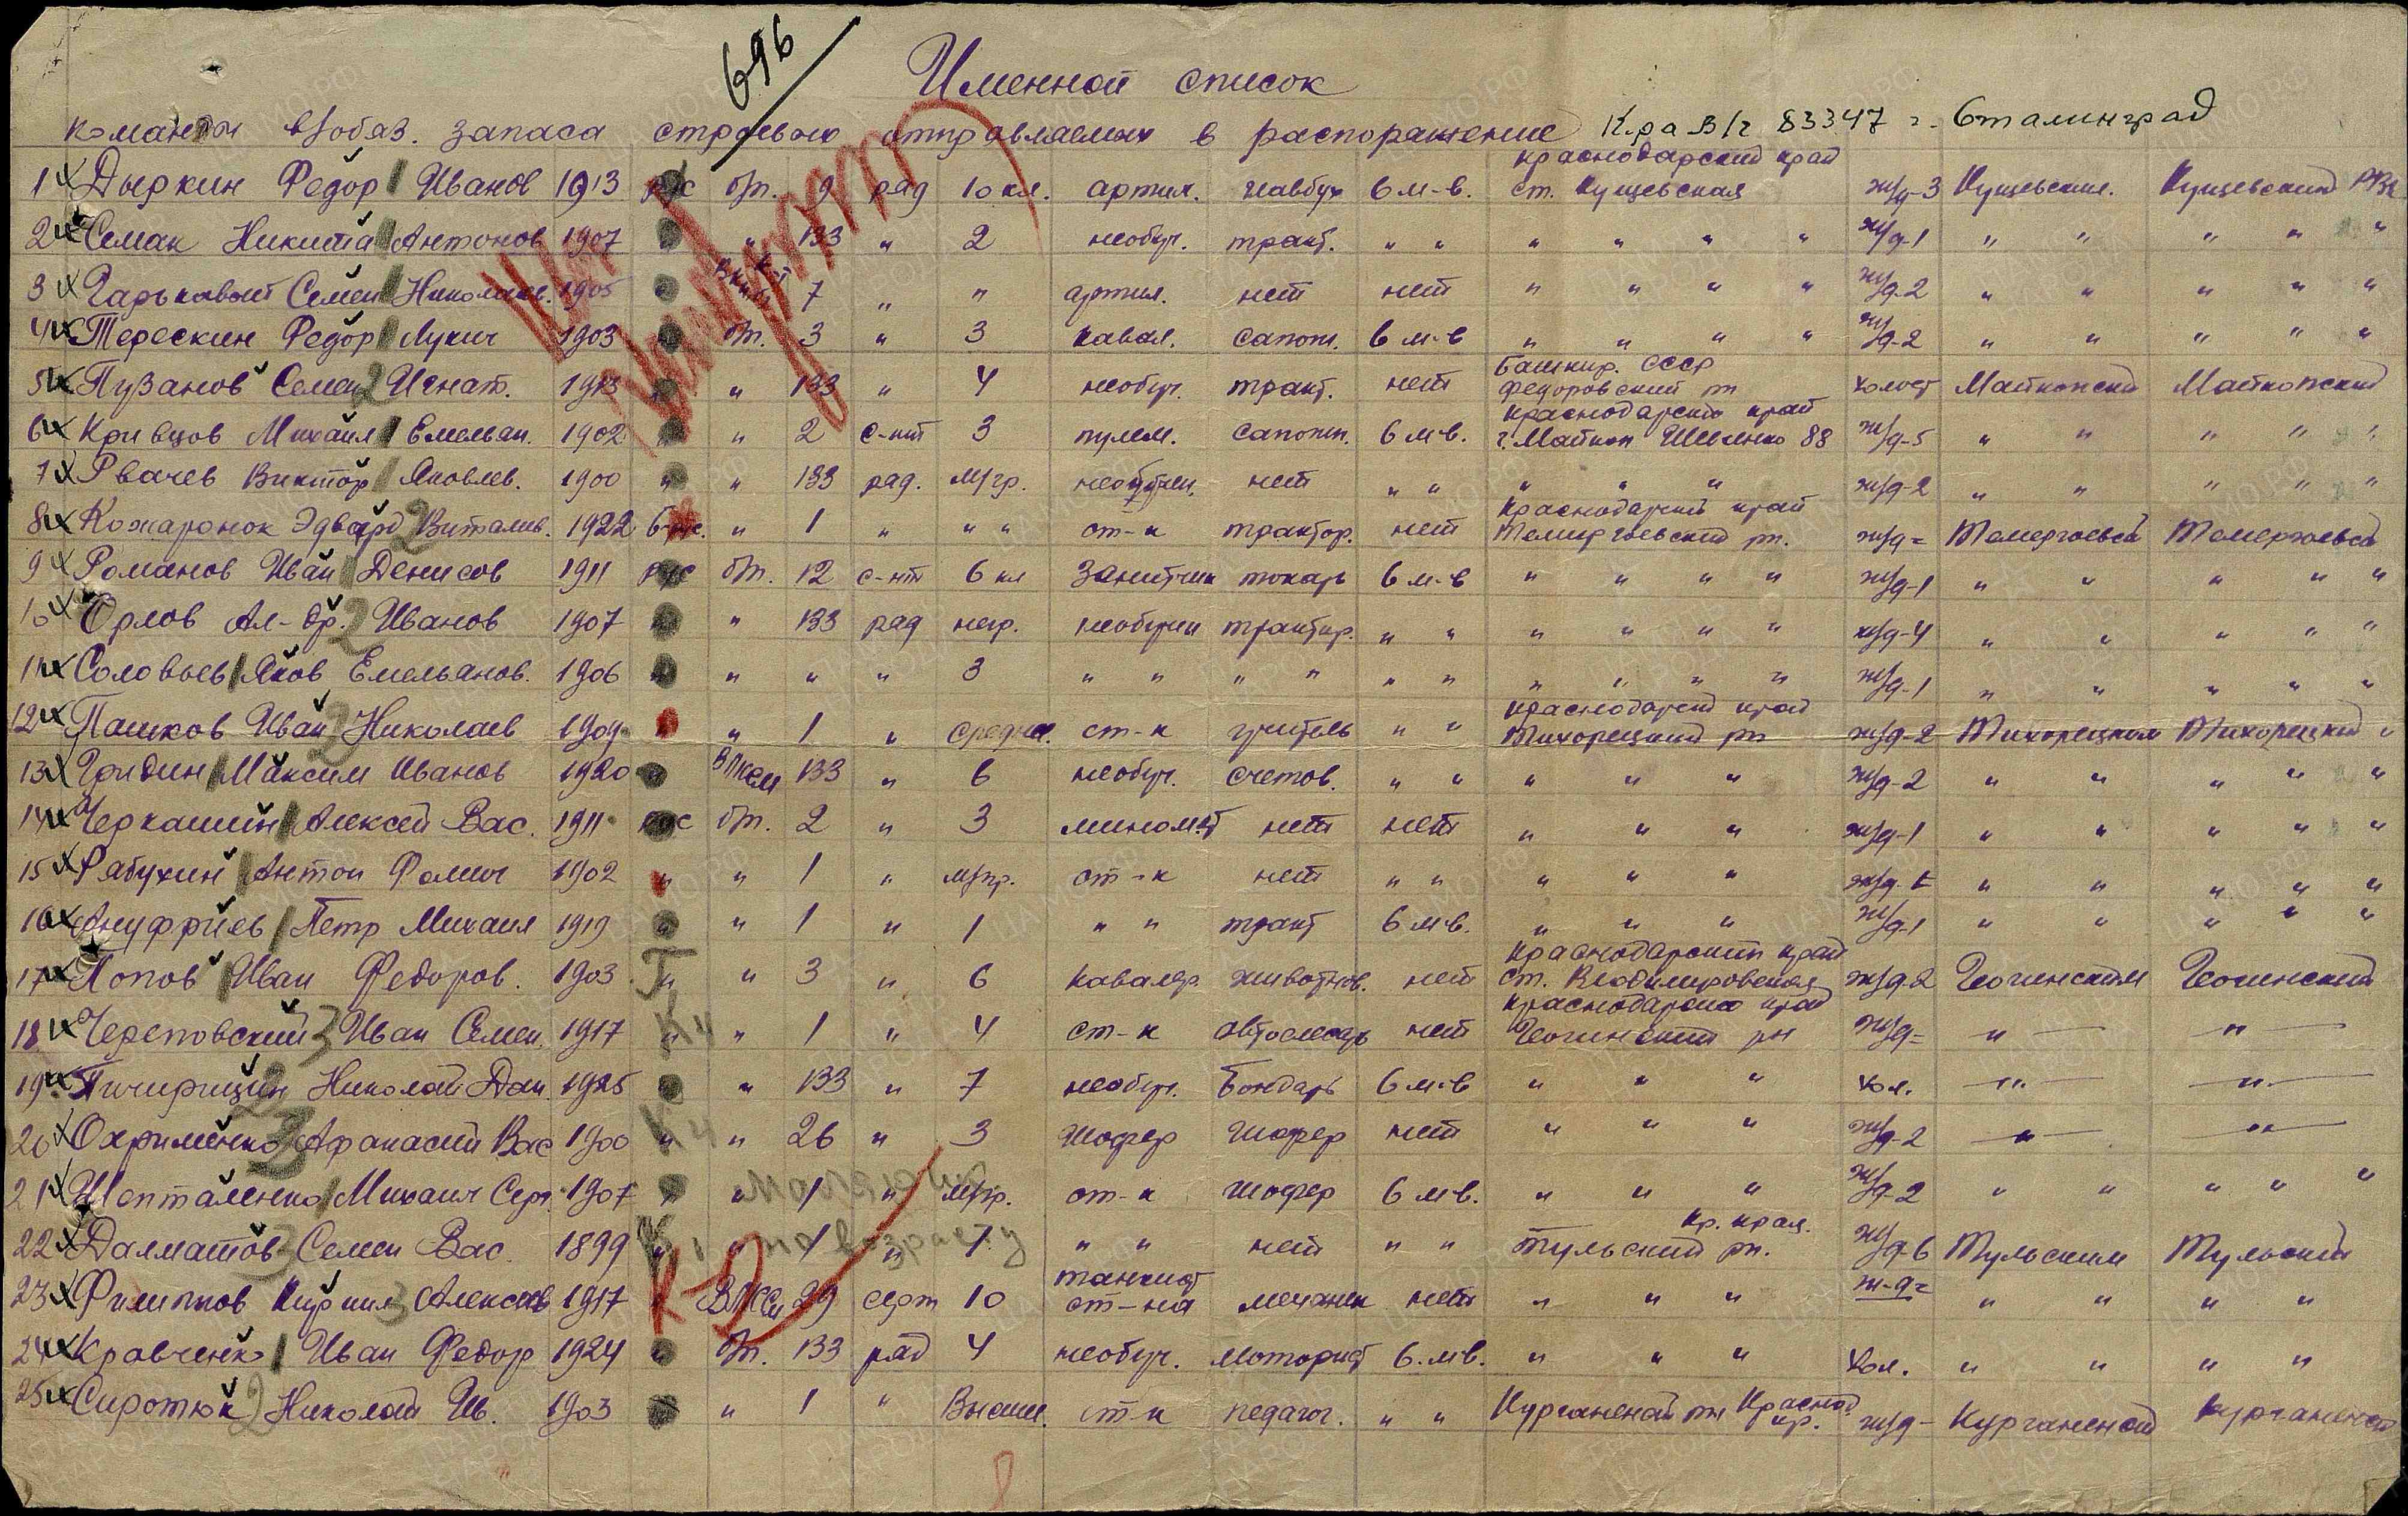 696
Именной список
команды в/обяз. запаса строевых отправляемых в распоряжение К-ра В/ч 83347 г. Сталинград
1 Дыркин Федор Иванов 1913 рус б/п. 9 ряд 10 кл. артил. главбух 6 м-в. Краснодарский край ст. Кущевская ж/д-3 Кущевским. Кущевский РВК
2 Семак Никита Антонов 1907 " " 133 " 2 необуч. тракт. " " " " " " ж/д-1 " " " " "
3 Гарьковый Семен Николаев. 1905 " 7 " " артил. нет нет " " " " ж/д-2 " " " " "
4 Терескин Федор Лукич 1903 б/п. 3 " 3 кавал. сапож. 6 м-в " " " " ж/д-2 " " " " "
5 Пузанов Семен 2 Игнат. 1913 " " 133 " 4 необуч. тракт. нет Башкир. СССР Федоровский рн холост Майкопский Майкопский
6 Кривцов Михаил Емельян. 1902 " " 2 с-нт 3 пулем. сапожн. 6 м-в. Краснодарский край г. Майкоп 88 ж/д-5 " " " " "
7 Рвачев Виктор Яковлев. 1900 " " 133 ряд. м/гр. необучен. нет " " " " " ж/д-2 " " " " "
8 Кожаронок Эдвард 2 Виталив. 1922 б-рус. " 1 " " " ст-к трактор. нет Краснодарский край Темиргоевский рн. ж/д= Темергоевск Темергоевск
9 Романов Иван Денисов 1911 рус б/п. 12 с-нт 6 кл зенитчик токарь 6 м-в " " " " ж/д-1 " " " " "
10 Орлов Ал-др. 2 Иванов 1907 " " 133 ряд негр. необучен трактор. " " " " " " ж/д-4 " " " " "
11 Соловьев Яков Емельянов. 1906 " " " " 3 " " " " " " " " " " ж/д-1 " " " " "
12 Пашков Иван 2 Николаев 1909 " 1 " средне. ст-к учитель " " Краснодарский край Тихорецкий рн ж/д-2 Тихорецким Тихорецкий "
13 Гридин Максим Иванов 1920 " 133 " 6 необуч. счетов. " " " " " ж/д-2 " " " " "
14 Черкашин Алексей Вас. 1911 рус б/п. 2 " 3 миномет нет нет " " " ж/д-1 " " " " "
15 Рябухин Антон Фомич 1902 " " 1 " м/гр. ст-к нет " " " " " ж/д- " " " " "
16 Ануфриев Петр Михаил 1919 " " 1 " 1 " " тракт 6 м-в. " " " ж/д-1 " " " " "
17 Попов Иван Федоров. 1903 " " 3 " 6 кавалер. животнов. нет Краснодарский край ст. Владимировская ж/д-2 Геогинским Геогинский
18 Череповский 3 Иван Семен. 1917 " " 1 " 4 ст-к автослесарь нет Краснодарский край Геогинский рн ж/д= " "
19 Пичирицин Николай Дан. 1925 " " 133 " 7 необуч. бондарь 6 м-в " " " хол. " "
20 Охрименко 3 Афанасий Вас 1900 " " 26 " 3 шофер шофер нет " " " ж/д-2 " "
21 Шапталенко Михаил Серг. 1907 " " 1 " м/гр. ст-к шофер 6 м-в. " " " ж/д-2 " " " " "
22 Далматов 3 Семен Вас. 1899 " " 1 " 1 " " нет " " Кр. края. Тульский рн. ж/д-6 Тульским Тульский
по возрасту
23 Филиппов Кирилл 3 Алексеев 1917 29 серж 10 танкист ст-на механик нет " " " ж-д= " " " "
24 Кравченко Иван Федор 1924 " б/п. 133 ряд 4 необуч. моторист 6. м-в. " " " хол. " " " "
25 Сиротюк 2 Николай Ив. 1903 " " 1 " Высш. ст-к педагог. " " Курганенский рн Краснод. кр. ж/д- Курганенской Курганенской
8